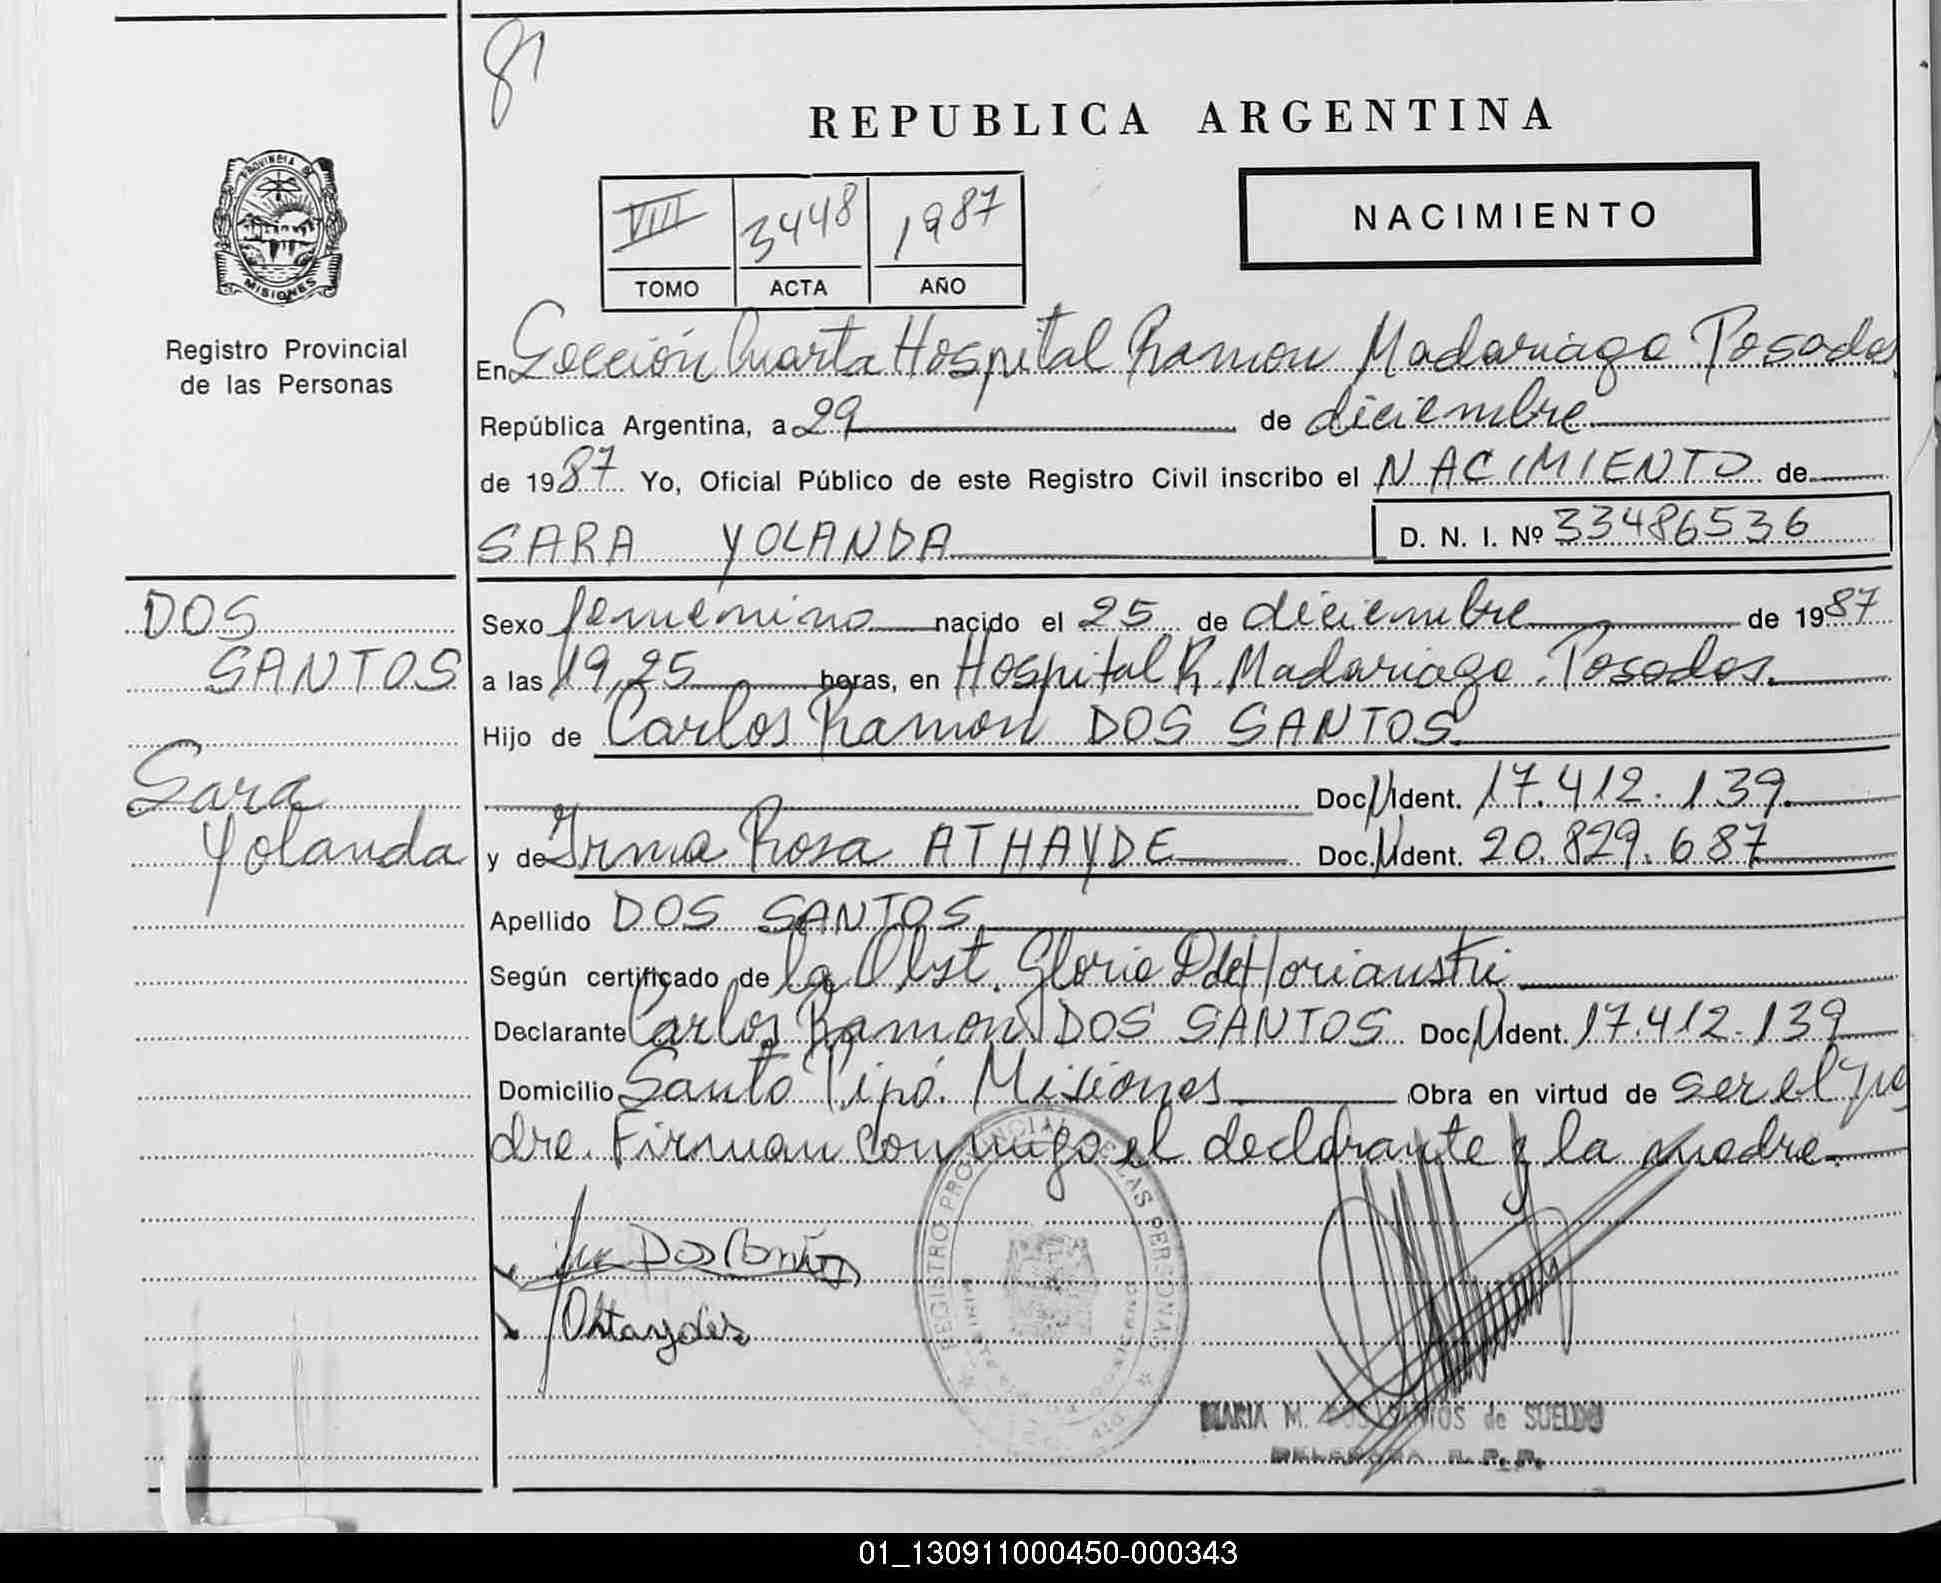 81
REPUBLICA ARGENTINA
PROVINCIA DE
MISIONES
VIII 3448 1987
TOMO ACTA AÑO
NACIMIENTO
Registro Provincial
de las Personas
En Sección Cuarta Hospital Ramon Madariaga Posadas
República Argentina, a 29 de diciembre
de 1987 Yo, Oficial Público de este Registro Civil inscribo el NACIMIENTO de
SARA YOLANDA D. N. I. Nº 33486536
DOS
SANTOS
Sara
Yolanda
Sexo femenino nacido el 25 de diciembre de 1987
a las 19,25 horas, en Hospital R. Madariaga. Posadas.
Hijo de Carlos Ramon DOS SANTOS
Doc. Ident. 17.412.139
y de Irma Rosa ATHAYDE Doc. Ident. 20.829.687
Apellido DOS SANTOS
Según certificado de la Obst. Gloria
Declarante Carlos Ramon DOS SANTOS Doc. Ident. 17.412.139
Domicilio Santo Pipó. Misiones Obra en virtud de ser el pa
dre. Firman conmigo el declarante y la madre.
Dos Santos
REGISTRO PROVINCIAL DE LAS PERSONAS
MARIA M. DOS SANTOS de SUELDO
DELEGADA R. P. P.
01_130911000450-000343